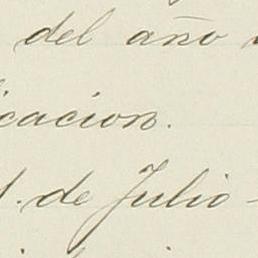 del año
icacion.
de Julio